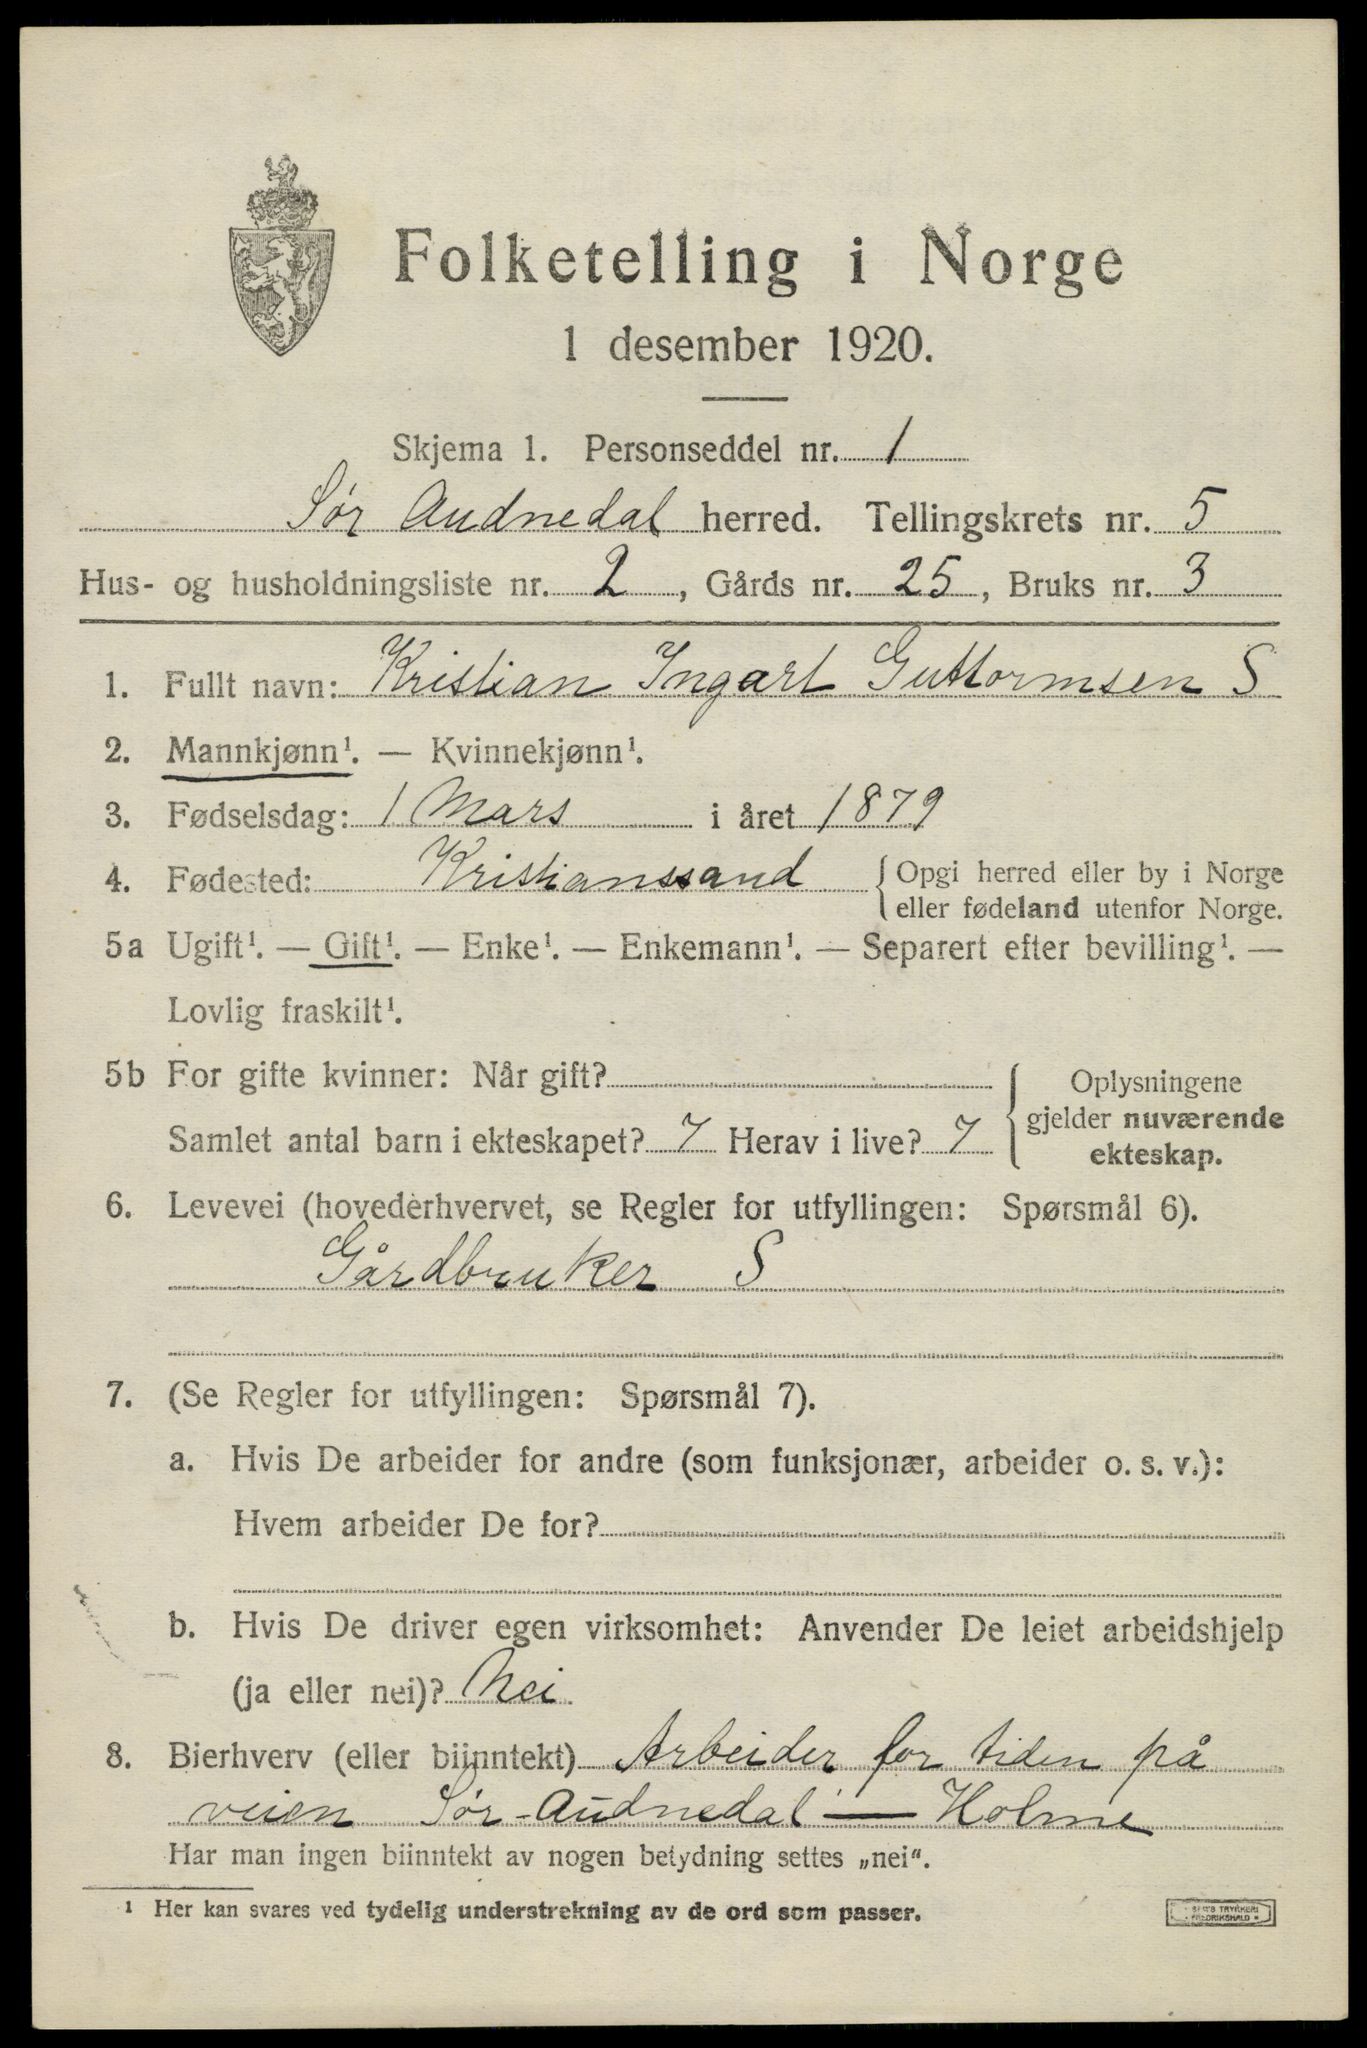 Folketelling i Norge
1 desember 1920.
Skjema 1. Personseddel nr. 1
Sør Audnedal herred. Tellingskrets nr. 5
Hus- og husholdningsliste nr. 2, Gårds nr. 25, Bruks nr. 3
1. Fullt navn: Kristian Ingart Guttormsen S
2. Mannkjønn¹. — Kvinnekjønn¹.
3. Fødselsdag: 1 Mars i året 1879
4. Fødested: Kristianssand { Opgi herred eller by i Norge
eller fødeland utenfor Norge.
5a Ugift¹. — Gift¹. — Enke¹. — Enkemann¹. — Separert efter bevilling¹. —
Lovlig fraskilt¹.
5b For gifte kvinner: Når gift?
Samlet antal barn i ekteskapet? 7 Herav i live? 7
{ Oplysningene
gjelder nuværende
ekteskap.
6. Levevei (hovederhvervet, se Regler for utfyllingen: Spørsmål 6).
Gårdbruker S
7. (Se Regler for utfyllingen: Spørsmål 7).
a. Hvis De arbeider for andre (som funksjonær, arbeider o. s. v.):
Hvem arbeider De for?
b. Hvis De driver egen virksomhet: Anvender De leiet arbeidshjelp
(ja eller nei)? Nei.
8. Bierhverv (eller biinntekt) Arbeider for tiden på
veien Sør-Audnedal — Holme
Har man ingen biinntekt av nogen betydning settes „nei“.
¹ Her kan svares ved tydelig understrekning av de ord som passer.
TRYKKERI
FREDRIKSHALD